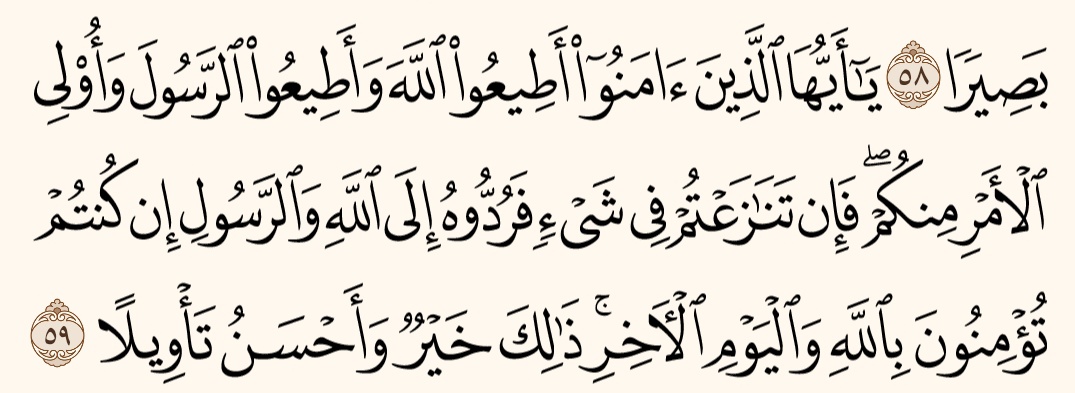 بَصِيرًا ٥٨ يَـٰٓأَيُّهَا ٱلَّذِينَ ءَامَنُوٓا۟ أَطِيعُوا۟ ٱللَّهَ وَأَطِيعُوا۟ ٱلرَّسُولَ وَأُو۟لِى
ٱلْأَمْرِ مِنكُمْ ۖ فَإِن تَنَـٰزَعْتُمْ فِى شَىْءٍ فَرُدُّوهُ إِلَى ٱللَّهِ وَٱلرَّسُولِ إِن كُنتُمْ
تُؤْمِنُونَ بِٱللَّهِ وَٱلْيَوْمِ ٱلْـَٔاخِرِ ۚ ذَٰلِكَ خَيْرٌ وَأَحْسَنُ تَأْوِيلًا ٥٩